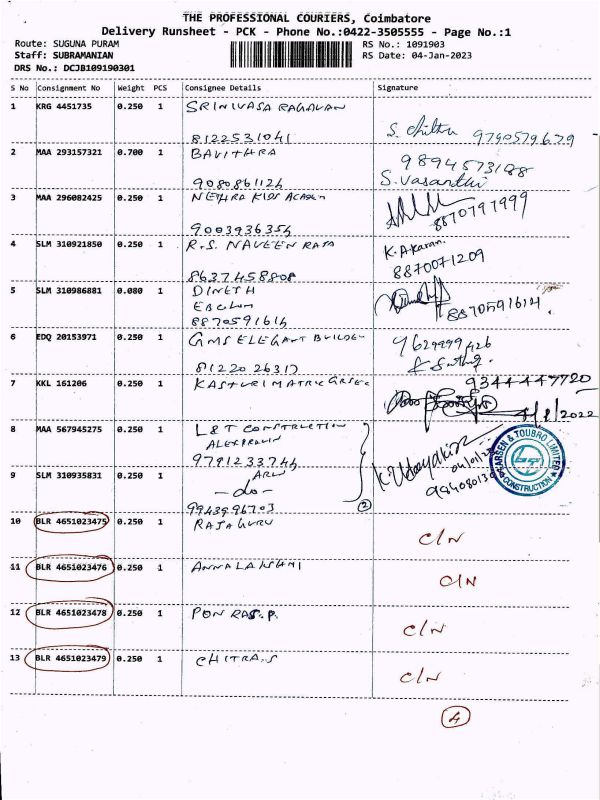 THE PROFESSIONAL COURIERS, Coimbatore
Delivery Runsheet - PCK - Phone No.:0422-3505555 - Page No.:1
Route: SUGUNA PURAM
Staff: SUBRAMANIAN
DRS No.: DCJB109190301
RS No.: 1091903
RS Date: 04-Jan-2023
S No Consignment No Weight PCS Consignee Details Signature
1 KRG 4451735 0.250 1 SRINIVASA RAGAVAN
8122531041 S. Chitra 9790579679
2 MAA 293157321 0.700 1 BAVITHRA 9894573188
9080861124 S.Vasanthi
3 MAA 296082425 0.250 1 NETHRA KIDS ACADEM
9003936354 8870797999
4 SLM 310921850 0.250 1 R.S. NAVEEN RAJA K.A.Karan.
8637458808 8870071209
5 SLM 310986881 0.080 1 DINETH
8870591614 8870591614.
6 EDQ 20153971 0.250 1 GMS ELEGANT BUILDER 9629999426
8122026317
7 KKL 161206 0.250 1 KASTURI MATRIC 9344447720
4/1/2022
8 MAA 567945275 0.250 1 L&T CONSTRUCTION
9791233744
LARSEN & TOUBRO LIMITED
CONSTRUCTION
SLM 310935831 0.250 1 ARUN
-do-
9943996703
2
10 BLR 4651023475 0.250 1 RAJAGURU C/N
11 BLR 4651023476 0.250 1 ANNALAKSHMI C/N
12 BLR 4651023478 0.250 1 PON RAJ.P. C/N
13 BLR 4651023479 0.250 1 CHITRA.S C/N
4